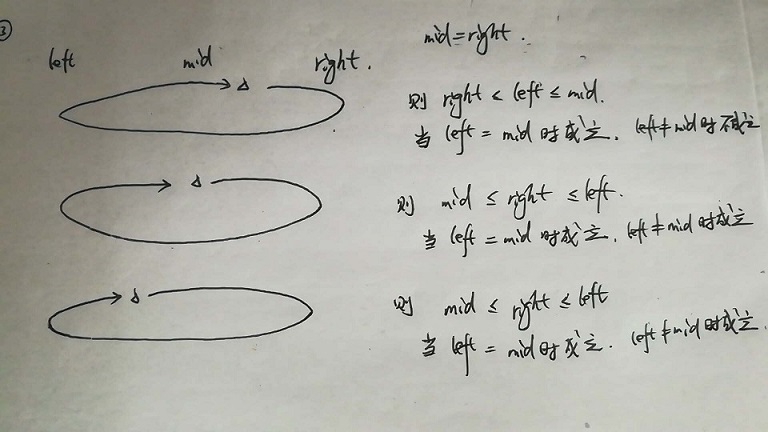 ③
left mid right.
mid=right.
则 right < left ≤ mid.
当 left = mid 时成立. left≠mid时不成立
则 mid ≤ right ≤ left.
当 left = mid时成立. left≠mid时成立
则 mid ≤ right ≤ left
当 left = mid时成立. left≠mid时成立.